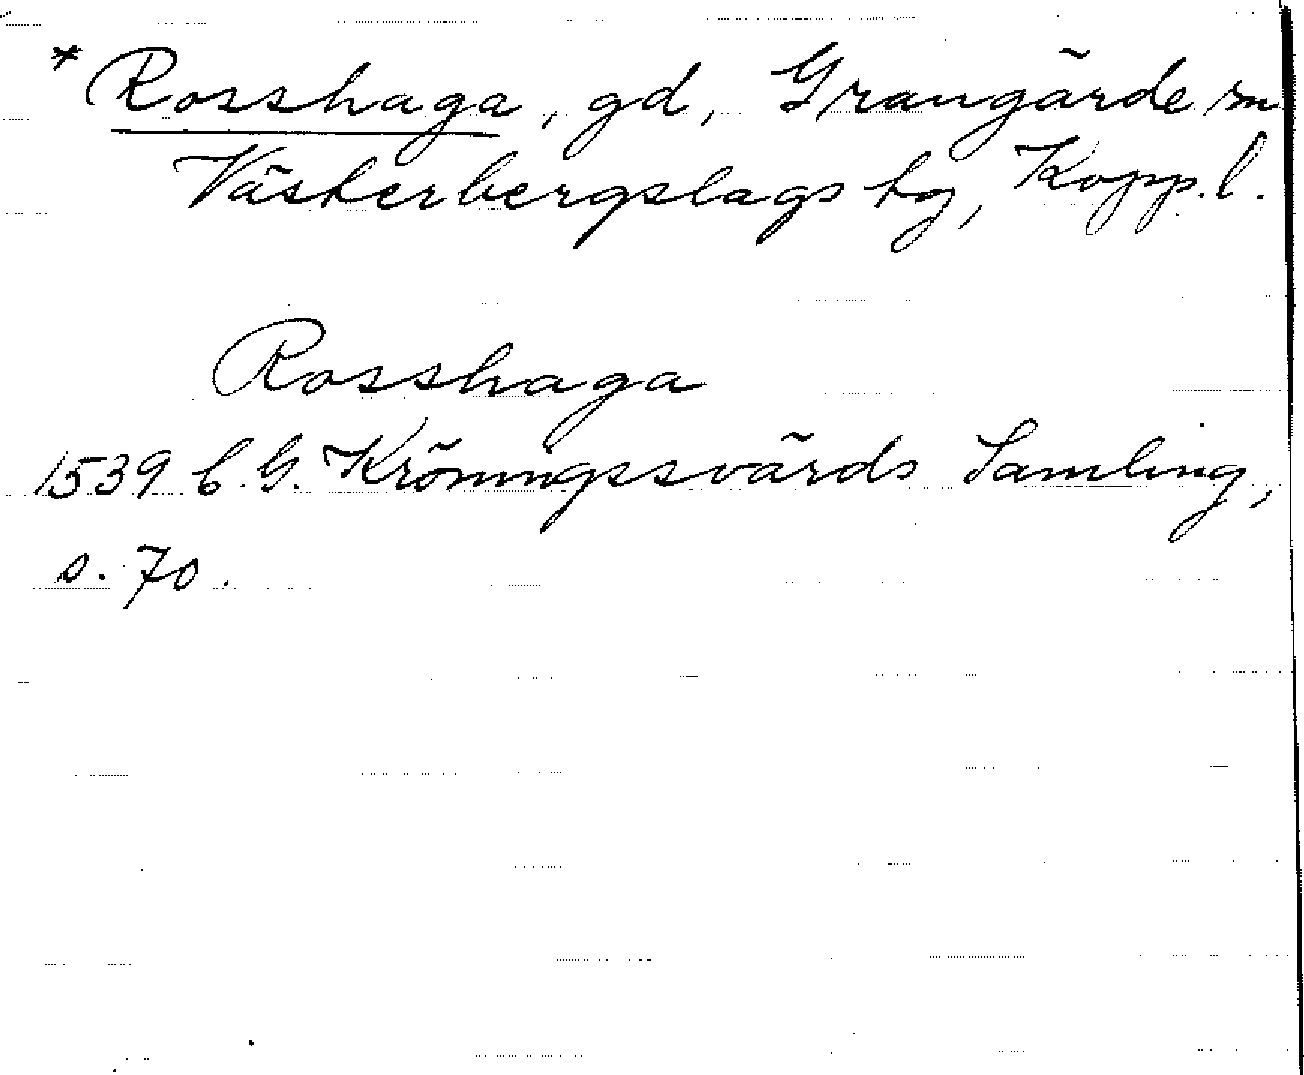 * Rosshaga, gd, Grangärde sn
Västerbergslags tg, Kopp. l.
Rosshaga
1539 C. G. Kröningssvärds Samling,
s. 70.